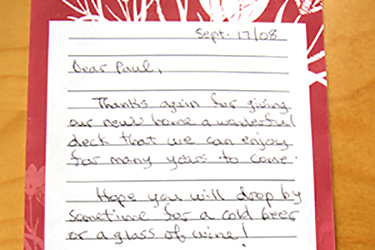 Sept. 17/08
Dear Paul,
Thanks again for giving
our new home a wonderful
deck that we can enjoy
for many years to come.
Hope you will drop by
sometime for a cold beer
or a glass of wine!